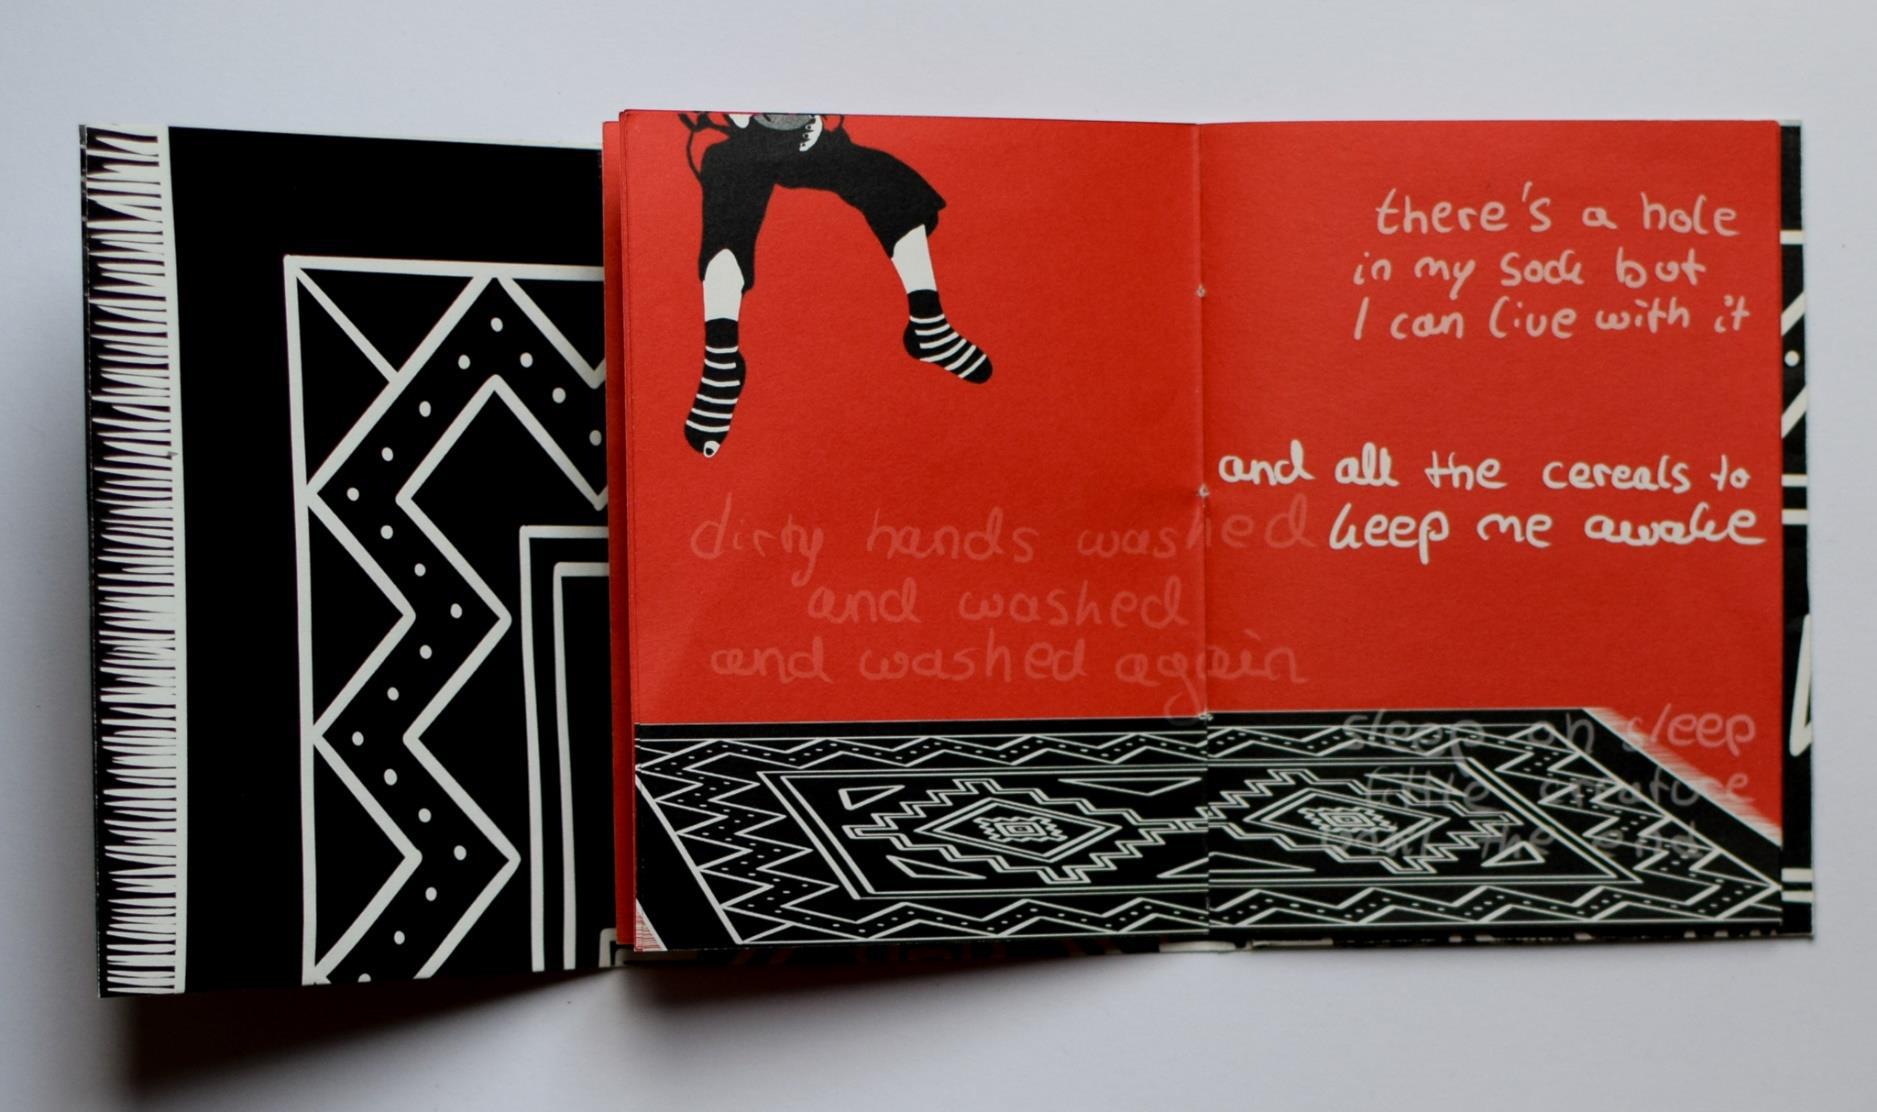 there's a hole
in my sock but
I can live with it
and all the cereals to
keep me awake
dirty hands washed
and washed
and washed again
sleep on sleep
little creature
until the end